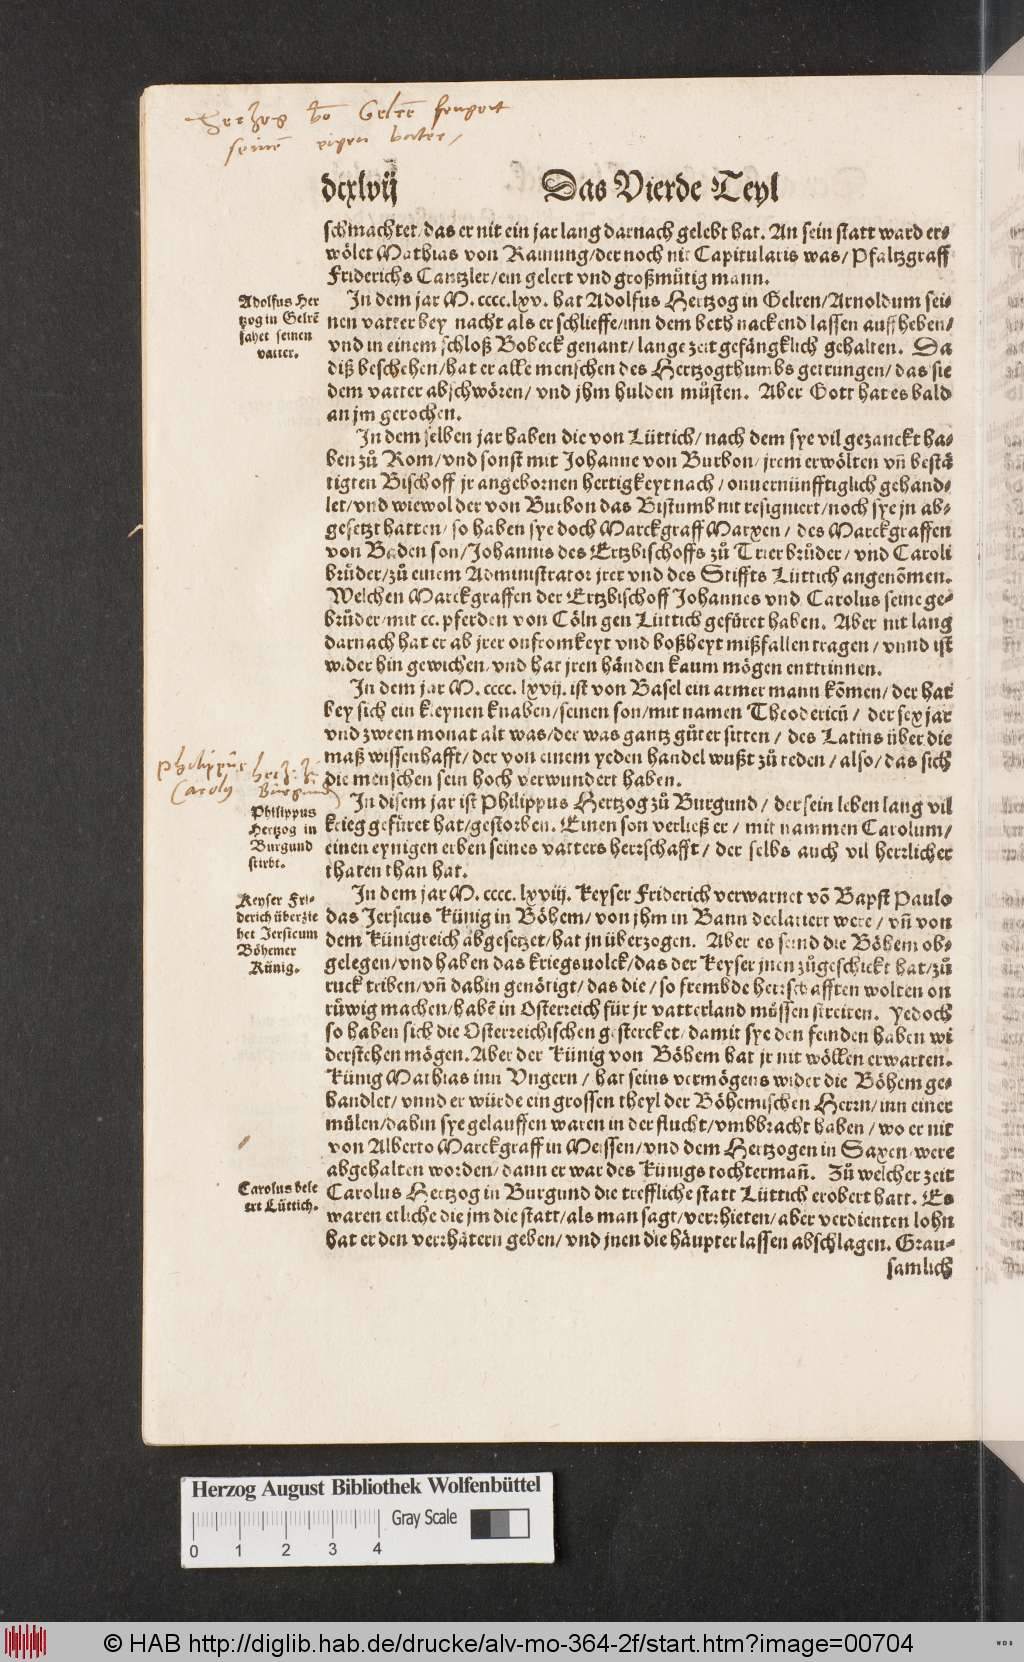 Hertzog võ Gelrẽ fenget
seinẽ eigen vater /
dcxlvij Das Vierde Teyl
schmachtet / das er nit ein jar lang darnach gelebt hat. An sein statt ward er-
wölet Mathias von Ramung / der noch nit Capitularis was / Pfaltzgraff
Friderichs Cantzler / ein gelert vnd großmůtig mann.
Adolfus Her
tzog in Gelrẽ
fahet seinen
vatter.
In dem jar M. cccc. lxv. hat Adolfus Hertzog in Gelren / Arnoldum sei-
nen vatter bey nacht als er schlieffe / inn dem beth nackend lassen auffheben /
vnd in einem schloß Bobeck genant / lange zeit gefängklich gehalten. Da
diß beschehen / hat er alle menschen des Hertzogthumbs getrungen / das sie
dem vatter abschwören / vnd jhm hulden můsten. Aber Gott hat es bald
an jm gerochen.
In dem selben jar haben die von Lüttich / nach dem sye vil gezanckt ha-
ben zů Rom / vnd sonst mit Johanne von Burbon / jrem erwölten vñ bestä
tigten Bischoff jr angebornen hertigkeyt nach / onuernünfftiglich gehand-
let / vnd wiewol der von Burbon das Bistumb nit resigniert / noch sye jn ab-
gesetzt hatten / so haben sye doch Marckgraff Marxen / des Marckgraffen
von Baden son / Johannis des Ertzbischoffs zů Trier brůder / vnd Caroli
brůder / zů einem Administrator jrer vnd des Stiffts Lüttich angenõmen.
Welchen Marckgraffen der Ertzbischoff Johannes vnd Carolus seine ge-
brůder / mit cc. pferden von Cöln gen Lüttich gefüret haben. Aber nit lang
darnach hat er ab jrer onfromkeyt vnd boßheyt mißfallen tragen / vnnd ist
wider hin gewichen / vnd hat jren händen kaum mögen enttrinnen.
In dem jar M. cccc. lxvij. ist von Basel ein armer mann kõmen / der hat
bey sich ein kleynen knaben / seinen son / mit namen Theodericũ / der sex jar
vnd zween monat alt was / der was gantz gůter sitten / des Latins über die
maß wissenhafft / der von einem yeden handel wußt zů reden / also / das sich
die menschen sein hoch verwundert haben.
Philippus hertz: zů
Caroly Burgund
Philippus
Hertzog in
Burgund
stirbt.
In disem jar ist Philippus Hertzog zů Burgund / der sein leben lang vil
krieg gefüret hat / gestorben. Einen son verließ er / mit nammen Carolum /
einen eynigen erben seines vatters herrschafft / der selbs auch vil herrlicher
thaten than hat.
Keyser Fri-
derich überzie
het Jersicum
Böhemer
Künig.
In dem jar M. cccc. lxviij. Keyser Friderich verwarnet võ Bapst Paulo
das Jersicus Künig in Böhem / von jhm in Bann declariert were / vñ von
dem Künigreich abgesetzet / hat jn überzogen. Aber es seind die Böhem ob-
gelegen / vnd haben das kriegsuolck / das der Keyser jnen zůgeschickt hat / zů
ruck triben / vñ dahin genötigt / das die / so frembde herrschafften wolten on
rüwig machen / habẽ in Osterreich für jr vatterland müssen streiten. Yedoch
so haben sich die Osterreichischen gestercket / damit sye den feinden haben wi
derstehen mögen. Aber der Künig von Böhem hat jr nit wöllen erwarten.
Künig Mathias inn Vngern / hat seins vermögens wider die Böhem ge-
handlet / vnnd er würde ein grossen theyl der Böhemischen Herrn / inn einer
můlen / dahin sye gelauffen waren in der flucht / vmbbracht haben / wo er nit
von Alberto Marckgraff in Meissen / vnd dem Hertzogen in Saxen / were
abgehalten worden / dann er war des Künigs tochtermañ. Zů welcher zeit
Carolus bele
gert Lüttich.
Carolus Hertzog in Burgund die treffliche statt Lüttich erobert hatt. Es
waren etliche die jm die statt / als man sagt / verrhieten / aber verdienten lohn
hat er den verrhätern geben / vnd jnen die häupter lassen abschlagen. Grau-
samlich
Herzog August Bibliothek Wolfenbüttel
Gray Scale
0 1 2 3 4
© HAB http://diglib.hab.de/drucke/alv-mo-364-2f/start.htm?image=00704